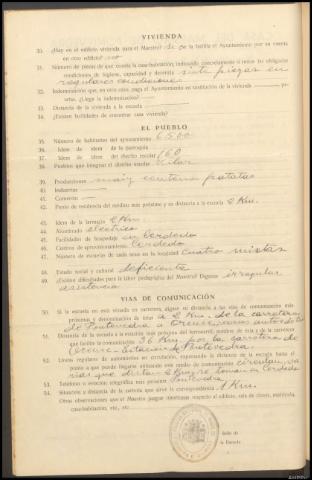 VIVIENDA
30. ¿Hay en el edificio vivienda para el Maestro? de no la facilita el Ayuntamiento por su cuenta
en otro edificio? no
31. Número de piezas de que consta la casa-habitación, indicando concretamente si reúne las obligadas
condiciones de higiene, capacidad y decencia siete piezas en
regulares condiciones
32. Indemnización que, en otro caso, paga el Ayuntamiento en sustitución de la vivienda
setas. ¿Llega la indemnización?
33. Distancia de la vivienda a la escuela
34. ¿Existen facilidades de encontrar casa vivienda?
EL PUEBLO
35. Número de habitantes del ayuntamiento 6500
36. Idem de idem de la parroquia
37. Idem de idem del distrito escolar 160
38. Pueblos que integran el distrito escolar Vilar
39. Producciones maiz centeno patatas
40. Industrias
41. Comercio
42. Punto de residencia del médico más próximo y su distancia a la escuela 2 Km.
43. Idem de la farmacia 2 Km.
44. Alumbrado electrico
45. Facilidades de hospedaje en Cerdedo
46. Centros de aprovisionamiento Cerdedo
47. Número de escuelas de cada sexo en la localidad cuatro mistas
48. Estado social y cultural deficiente
49. ¿Existen dificultades para la labor pedagógica del Maestro? Díganse irregular
asistencia
VIAS DE COMUNICACIÓN
50. Si la escuela no está situada en carretera, sígase su distancia a las vías de comunicación más
próximas y denominación de éstas a 2 Km. de la carretera
de Pontevedra a Orense
51. Distancia de la escuela a la estación más próxima del ferrocarril, nombre de ésta y de la carretera
que facilite la comunicación 36 Km. por la carretera de
Orense - Estación de Pontevedra.
52. Líneas regulares de automóviles en circulación, expresando la distancia de la escuela hasta el
punto a que puede llegarse utilizando este medio de comunicación circulan va
rias que distan 2 Km. se toman en Cerdedo
53. Teléfono o estación telegráfica más próxima Pontevedra
54. Situación y distancia de la cartería que sirve la correspondencia 1 Km.
Otras observaciones que el Maestro juzgue interesantes respecto al edificio, sala de clases, matrícula,
casa-habitación, etc., etc.